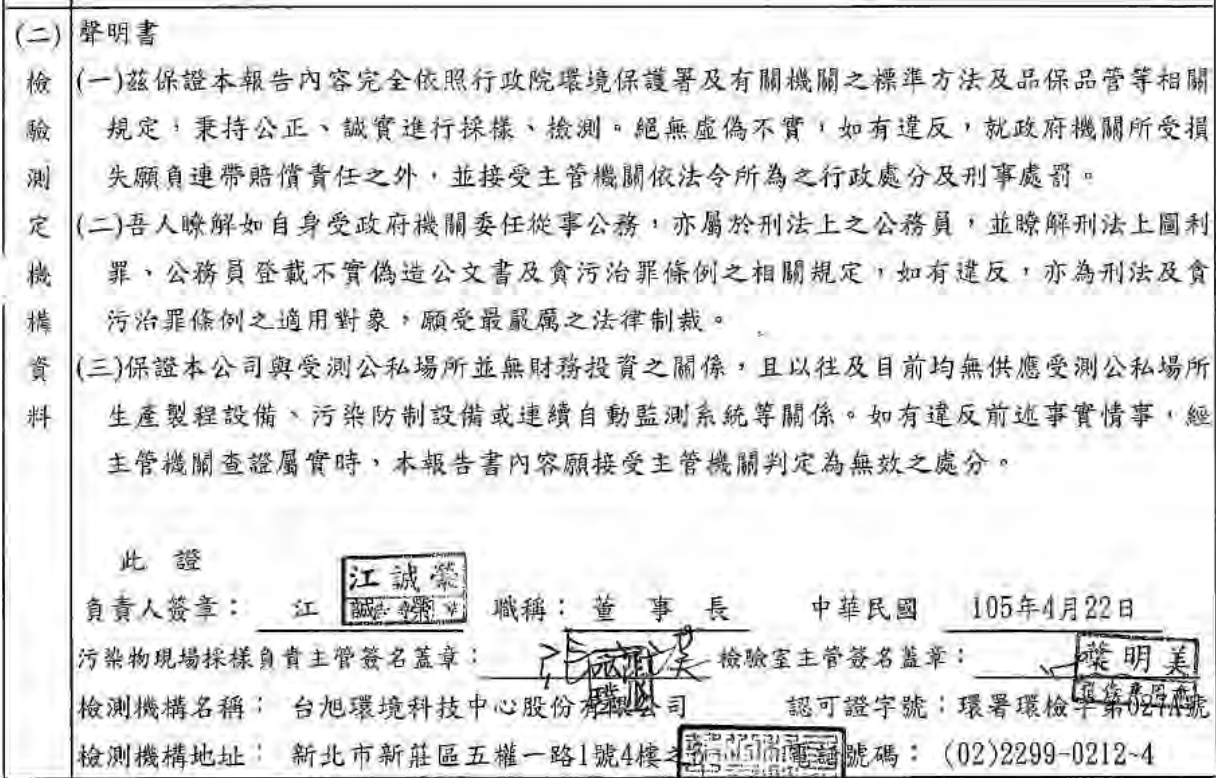 (二) 聲明書
檢驗測定機構資料
(一)茲保證本報告內容完全依照行政院環境保護署及有關機關之標準方法及品保品管等相關
規定，秉持公正、誠實進行採樣、檢測。絕無虛偽不實，如有違反，就政府機關所受損
失願負連帶賠償責任之外，並接受主管機關依法令所為之行政處分及刑事處罰。
(二)吾人瞭解如自身受政府機關委任從事公務，亦屬於刑法上之公務員，並瞭解刑法上圖利
罪、公務員登載不實偽造公文書及貪污治罪條例之相關規定，如有違反，亦為刑法及貪
污治罪條例之適用對象，願受最嚴厲之法律制裁。
(三)保證本公司與受測公私場所並無財務投資之關係，且以往及目前均無供應受測公私場所
生產製程設備、污染防制設備或連續自動監測系統等關係。如有違反前述事實情事，經
主管機關查證屬實時，本報告書內容願接受主管機關判定為無效之處分。
此 證
江誠榮
負責人簽章： 江 誠 榮 職稱： 董 事 長 中華民國 105年4月22日
污染物現場採樣負責主管簽名蓋章： 檢驗室主管簽名蓋章： 明美
檢測機構名稱： 台旭環境科技中心股份有限公司 認可證字號：環署環檢字第024A號
檢測機構地址： 新北市新莊區五權一路1號4樓之 電話號碼： (02)2299-0212~4